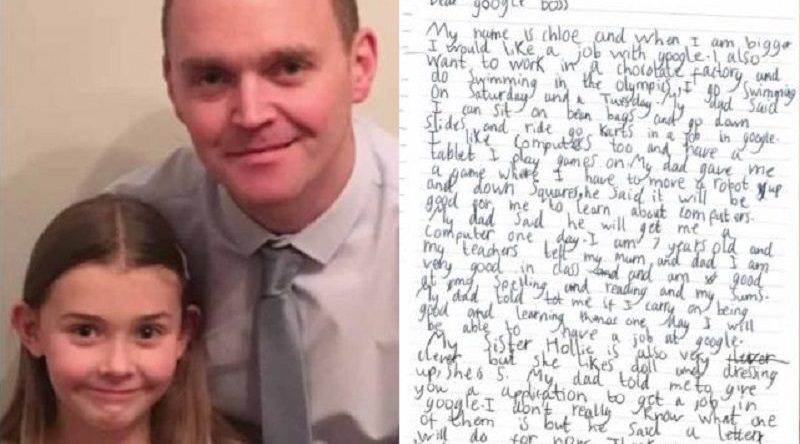 Dear google boss
My name is chloe and when I am bigger
I would like a job with google. I also
want to work in a chocolate factory and
do swimming in the olympics. I go swimming
on Saturday and a Tuesday. My dad said
I can sit on bean bags and go down
slides and ride go karts in a job in google.
I like computers too and have a
tablet I play games on. My dad gave me
a game where I have to move a robot up
and down squares, he said it will be
good for me to learn about computers.
My dad said he will get me a
computer one day. I am 7 years old and
my teachers tell my mum and dad I am
very good in class and am good
at my spelling and reading and my sums.
My dad told me if I carry on being
good and learning one day I will
be able to have a job at google.
My sister Hollie is also very
clever but she likes doll and dressing
up, she's 5. My dad told me to give
you a application to get a job in
google. I don't really know what one
of them is but he said a letter
will do for now.